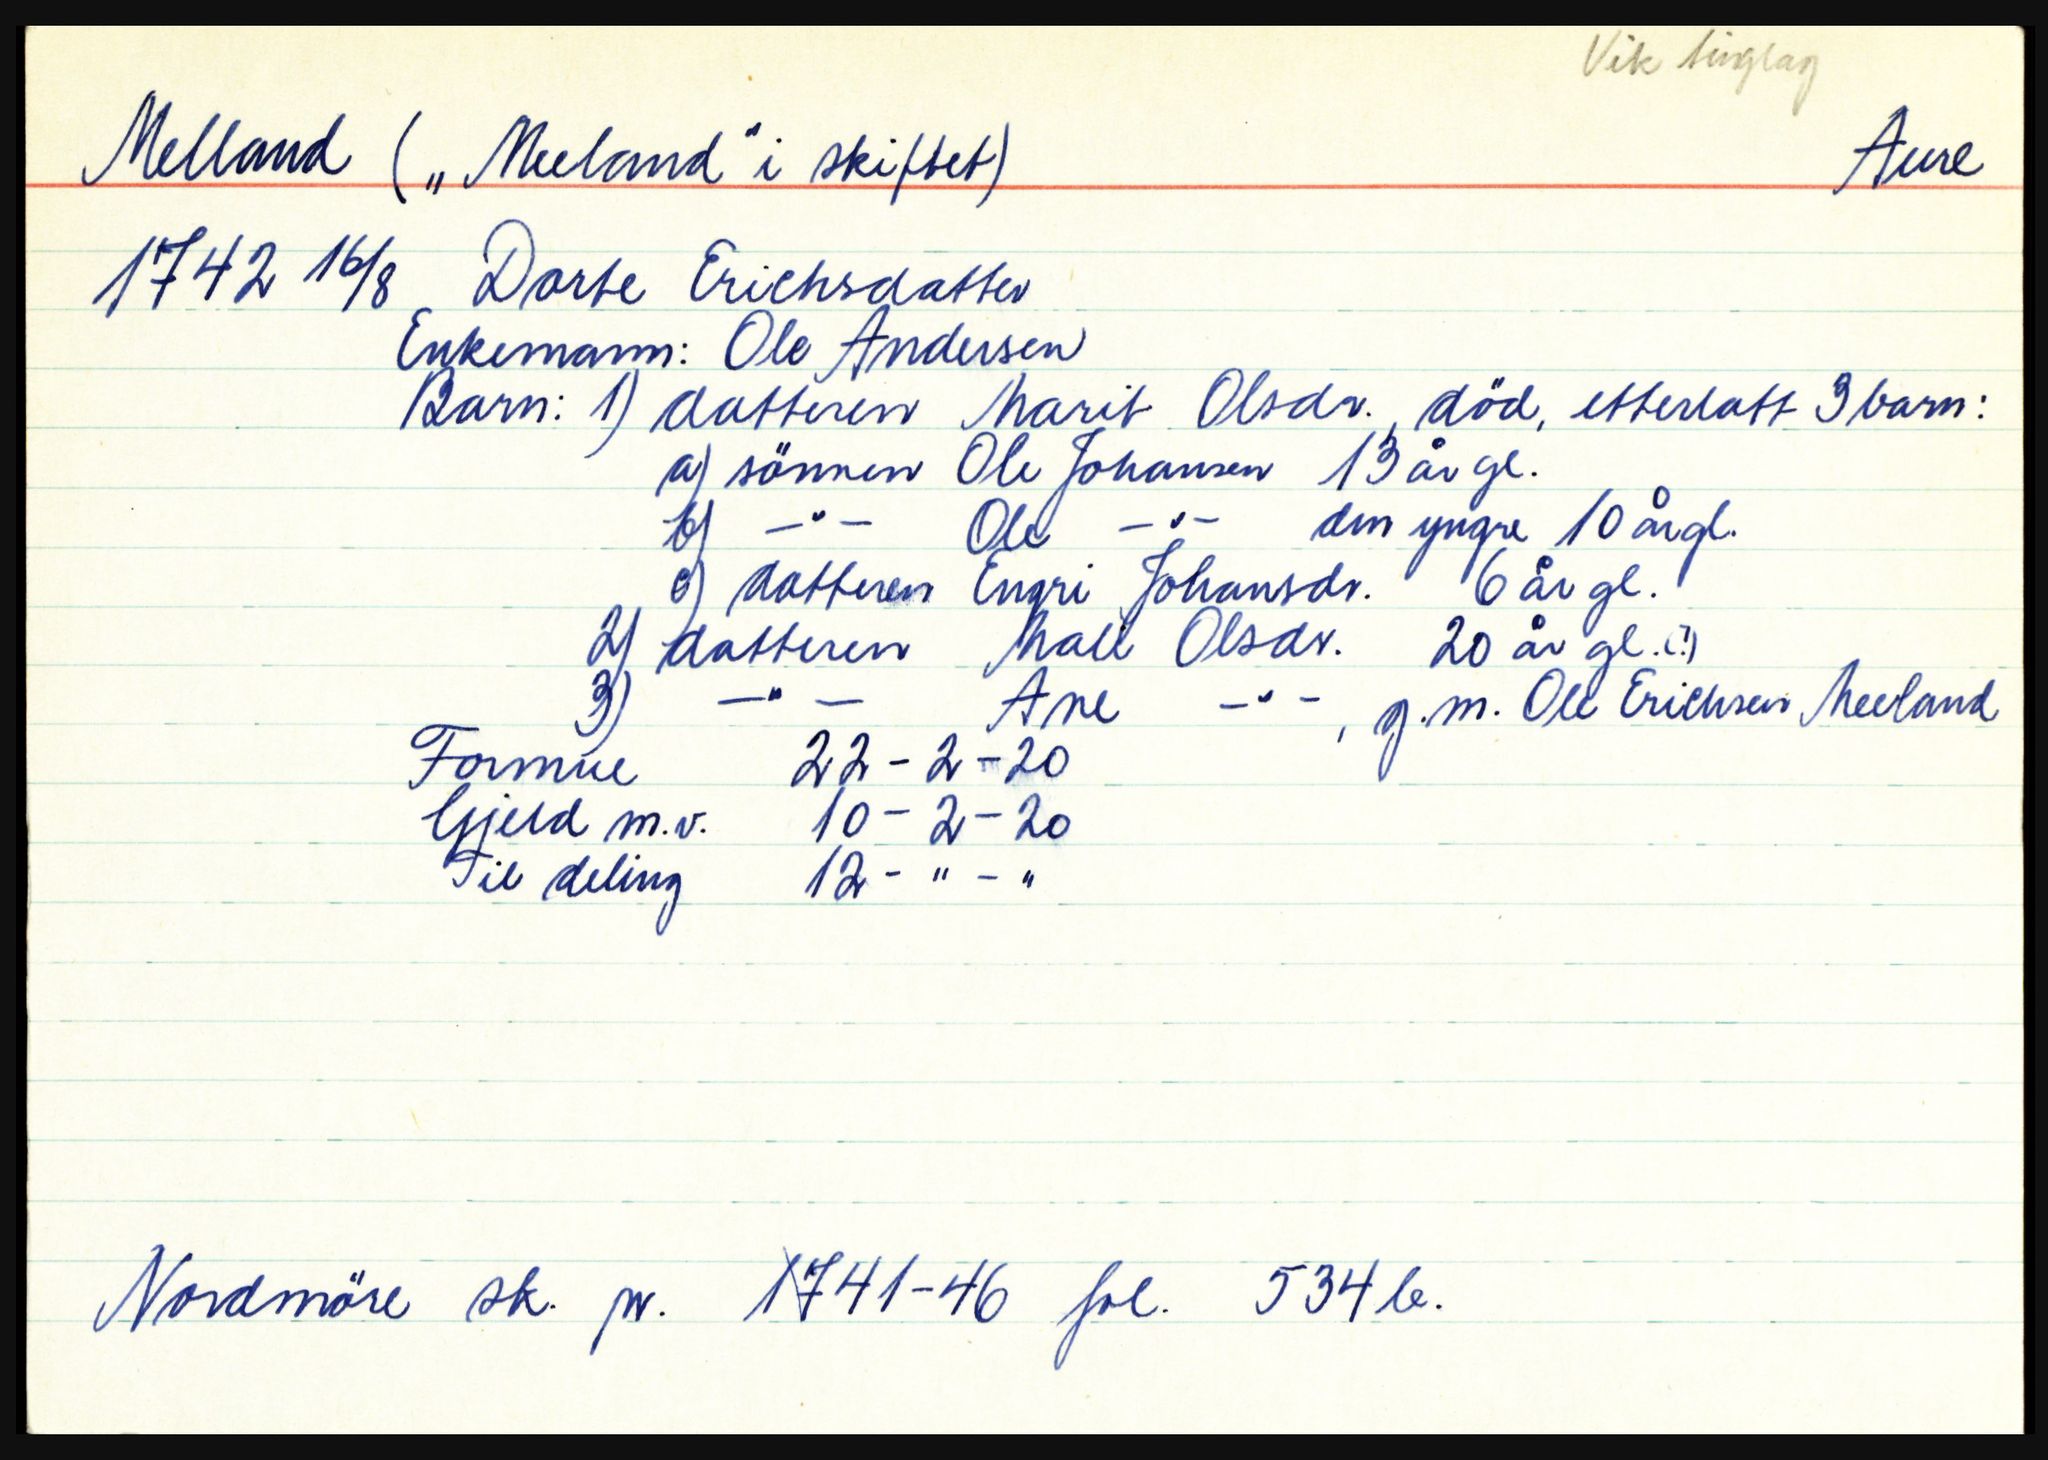 Vik tinglag
Melland („Meeland" i skiftet) Aure
1742 16/8 Dorte Erichsdatter
Enkemann: Ole Andersen
Barn: 1) datteren Marit Olsdr., död, etterlatt 3 barn:
a) sönnen Ole Johansen 13 år gl.
b) —"— Ole —"— den yngre 10 år gl.
c) datteren Engri Johansdr. 6 år gl.
2) datteren Mali Olsdr. 20 år gl. (!)
3) —"— Ane —"—, g.m. Ole Erichsen Meeland
Formue 22-2-20
Gjeld m.v. 10-2-20
Til deling 12-"-"
Nordmöre sk. pr. 1741-46 fol. 534 b.